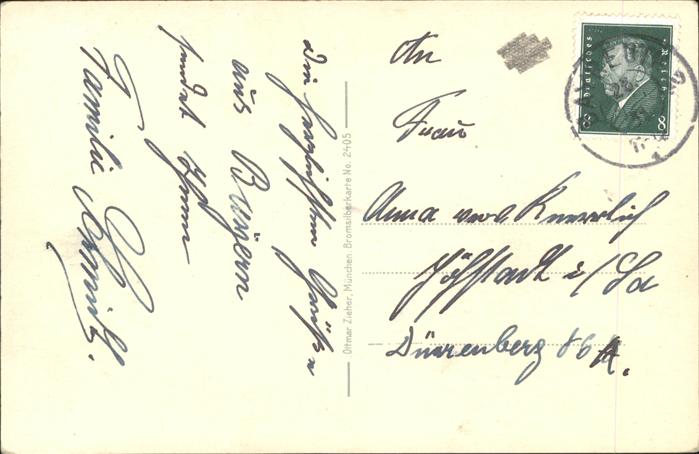 Die herzlichsten Grüße
aus Bayern
sendet Ihnen
Familie Schmidt.
Ottmar Zieher, München. Bromsilberkarte No. 2405
An
Frau
Anna
i/Sa
Dürrenberg 86
Deutsches Reich
8 8